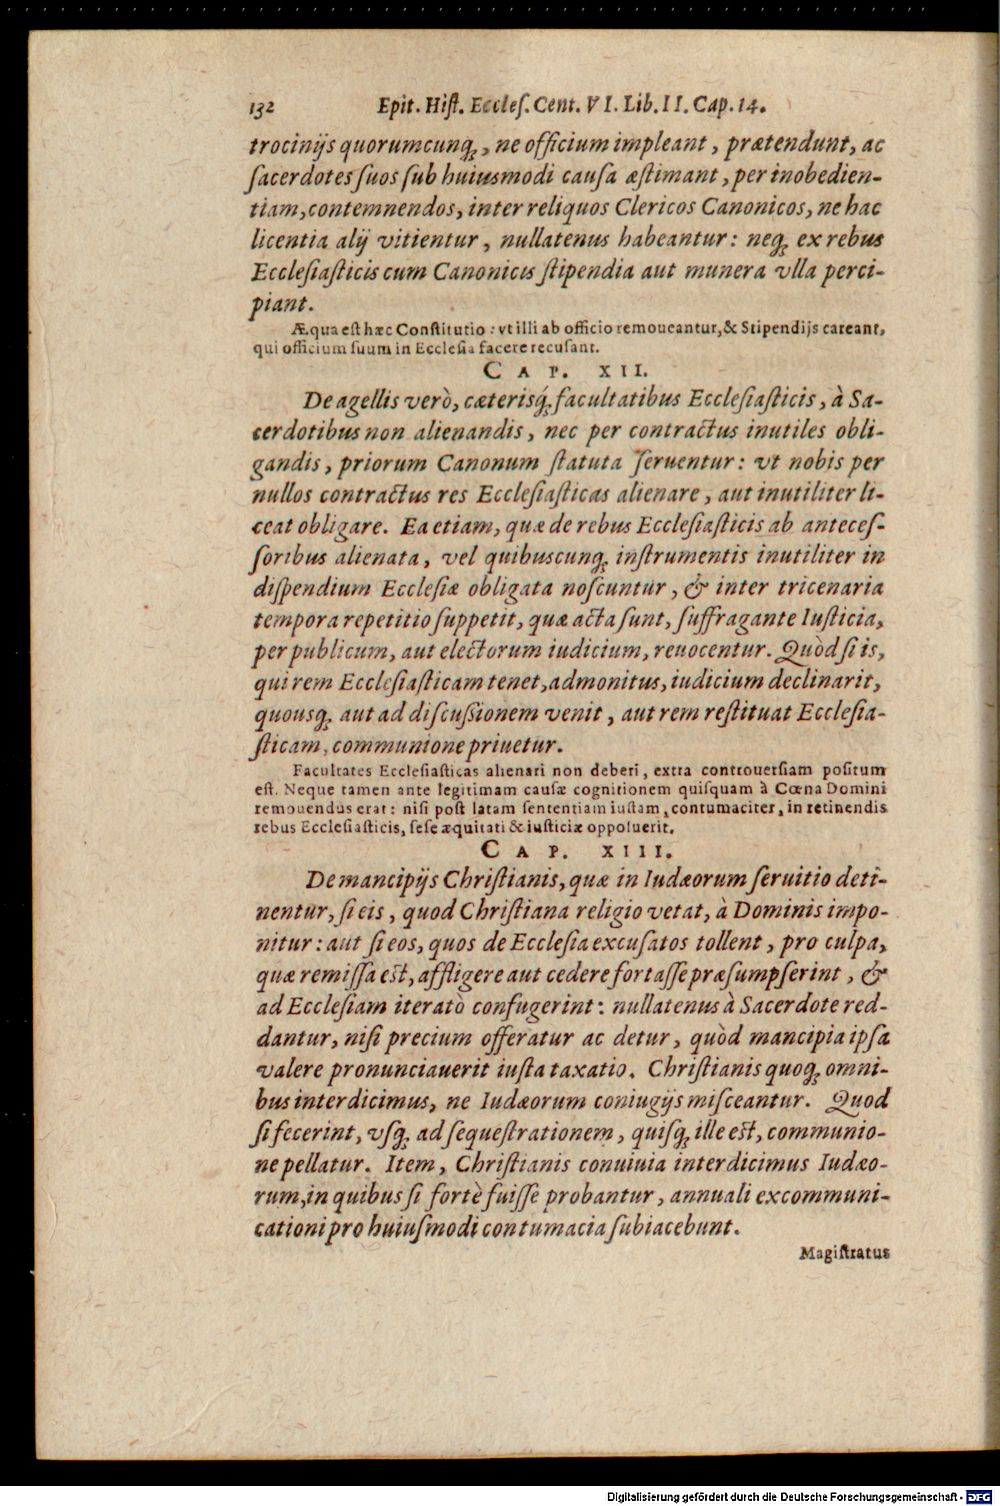 132 Epit. Hist. Eccles. Cent. VI. Lib. II. Cap. 14.
trocinijs quorumcunq́;, ne officium impleant, prætendunt, ac
sacerdotes suos sub huiusmodi causa æstimant, per inobedien-
tiam, contemnendos, inter reliquos Clericos Canonicos, ne hac
licentia alij vitientur, nullatenus habeantur: neq́; ex rebus
Ecclesiasticis cum Canonicis stipendia aut munera vlla perci-
piant.
Æqua est hæc Constitutio: vt illi ab officio remoueantur, & Stipendijs careant,
qui officium suum in Ecclesia facere recusant.
CAP. XII.
De agellis verò, cæterisq́; facultatibus Ecclesiasticis, à Sa-
cerdotibus non alienandis, nec per contractus inutiles obli-
gandis, priorum Canonum statuta seruentur: vt nobis per
nullos contractus res Ecclesiasticas alienare, aut inutiliter li-
ceat obligare. Ea etiam, quæ de rebus Ecclesiasticis ab anteces-
soribus alienata, vel quibuscunq́; instrumentis inutiliter in
dispendium Ecclesiæ obligata noscuntur, & inter tricenaria
tempora repetitio suppetit, quæ acta sunt, suffragante Iusticia,
per publicum, aut electorum iudicium, reuocentur. Quòd si is,
qui rem Ecclesiasticam tenet, admonitus, iudicium declinarit,
quousq́; aut ad discussionem venit, aut rem restituat Ecclesia-
sticam, communione priuetur.
Facultates Ecclesiasticas alienari non deberi, extra controuersiam positum
est. Neque tamen ante legitimam causæ cognitionem quisquam à Cœna Domini
remouendus erat: nisi post latam sententiam iustam, contumaciter, in retinendis
rebus Ecclesiasticis, sese æquitati & iusticiæ opposuerit.
CAP. XIII.
De mancipijs Christianis, quæ in Iudæorum seruitio deti-
nentur, si eis, quod Christiana religio vetat, à Dominis impo-
nitur: aut si eos, quos de Ecclesia excusatos tollent, pro culpa,
quæ remissa est, affligere aut cedere fortasse præsumpserint, &
ad Ecclesiam iteratò confugerint: nullatenus à Sacerdote red-
dantur, nisi precium offeratur ac detur, quòd mancipia ipsa
valere pronunciauerit iusta taxatio. Christianis quoq́; omni-
bus interdicimus, ne Iudæorum coniugijs misceantur. Quod
si fecerint, vsq́; ad sequestrationem, quisq́; ille est, communio-
ne pellatur. Item, Christianis conuiuia interdicimus Iudæo-
rum, in quibus si fortè fuisse probantur, annuali excommuni-
cationi pro huiusmodi contumacia subiacebunt.
Magistratus
Digitalisierung gefördert durch die Deutsche Forschungsgemeinschaft - DFG